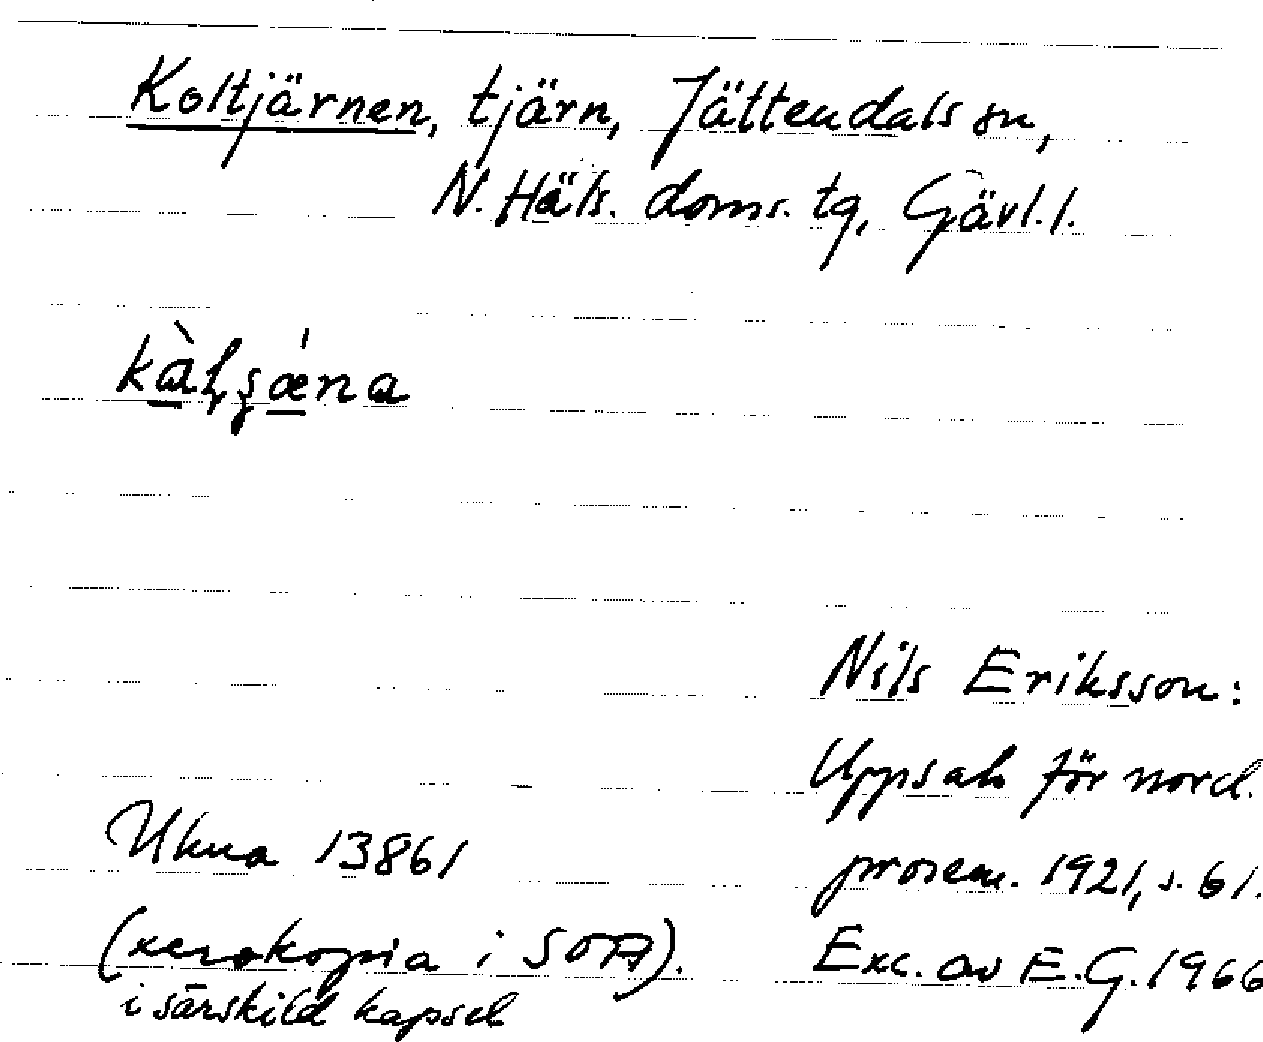 Koltjärnen, tjärn, Jättendals sn,
N. Häls. doms. tg, Gävl. l.
kàlʂǽna
Nils Eriksson:
Uppsats för nord.
prosem. 1921, s. 61.
Exc. av E.G. 1966
Ukua 13861
(xerokopia i SOA).
i särskild kapsel